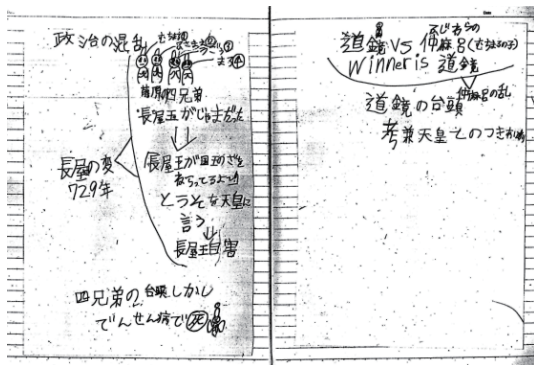 政治の混乱
四兄弟
長屋王がじゃまだった
長屋の変
729年
長屋王が国王のざを
ねらってるよー!
とうそを天皇に
言う
長屋王自害
四兄弟の台頭しかし
でんせん病で死
道鏡VS仲麻呂
ふじわらの
Winner is 道鏡
仲麻呂の乱
道鏡の台頭
考兼天皇とのつきあい